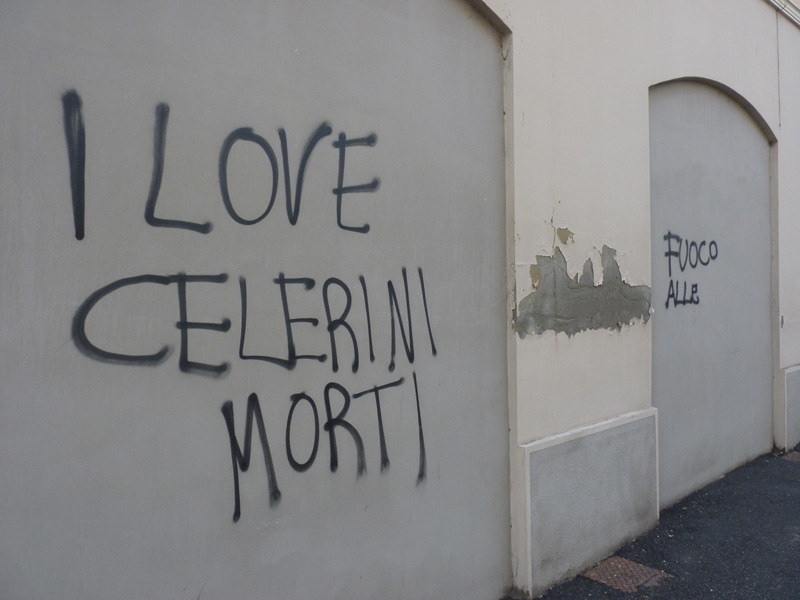 I LOVE
CELERINI
MORTI
FUOCO
ALLE